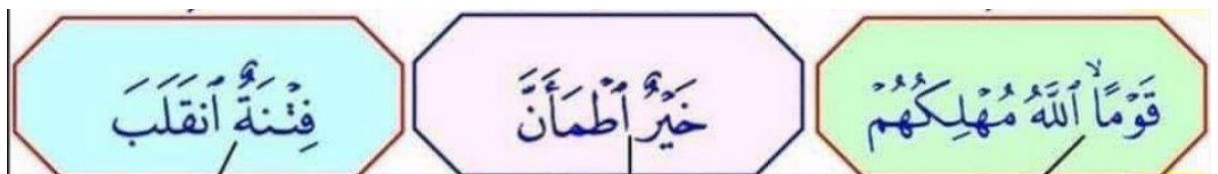 قَوْمًا ۙ ٱللَّهُ مُهْلِكُهُمْ
خَيْرٌ ٱطْمَأَنَّ
فِتْنَةٌ ٱنقَلَبَ